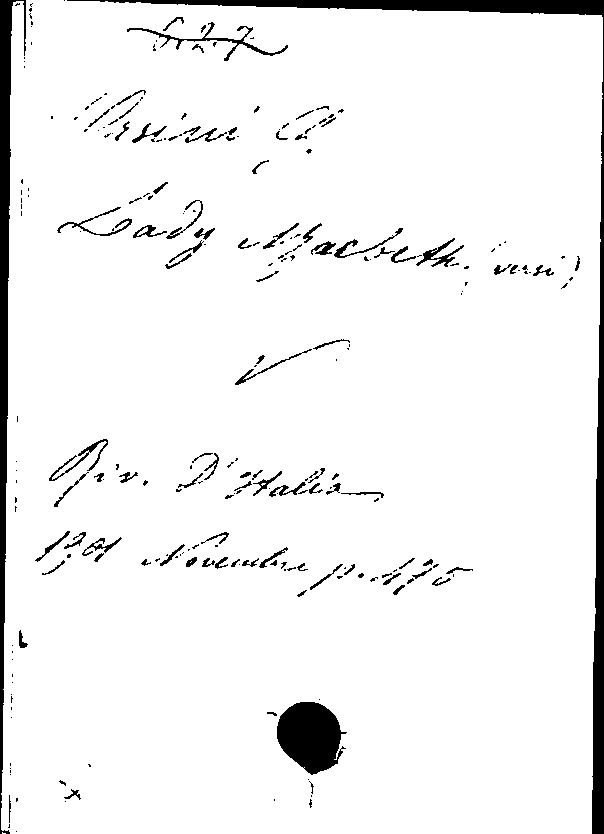 6.2.7
Ursini C.
Lady Macbeth. (versi)
Riv. D'Italia
1901 Novembre p. 475